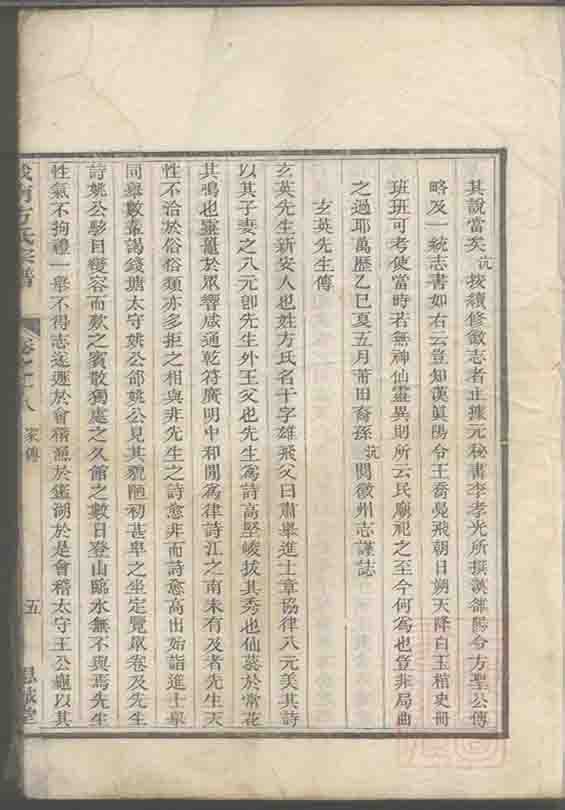 其說當矣沆按續修徽志者止據元秘書李孝光所撰漢黟縣令方聖公傳
略及一統志書如右云豈知漢眞陽令王喬鳧飛朝日朔天降白玉棺史冊
班班可考使當時若無神仙靈異則所云民廟祀之至今何爲也豈非局曲
之過耶萬歷乙巳夏五月莆田裔孫沆閱徽州志謹誌
玄英先生傳
玄英先生新安人也姓方氏名干字雄飛父曰肅舉進士章協律八元美其詩
以其子妻之八元卽先生外王父也先生爲詩高堅峻拔其秀也仙蘂於常花
其鳴也靈鼉於眾響咸通乾符廣明中和閒爲律詩江之南未有及者先生天
性不洽於俗俗類亦多拒之相與非先生之詩愈非而詩愈高出始詣進士舉
同舉數輩謁錢塘太守姚公郃姚公見其貌陋初甚卑之坐定覽眾卷及先生
詩姚公駭目變容而歎之賓散獨處之久館之數日登山臨水無不與焉先生
性氣不拘禮一舉不得志遂遯於會稽漁於鑑湖於是會稽太守王公龜以其
方氏宗譜
卷之十八
家傳
五
思誠堂